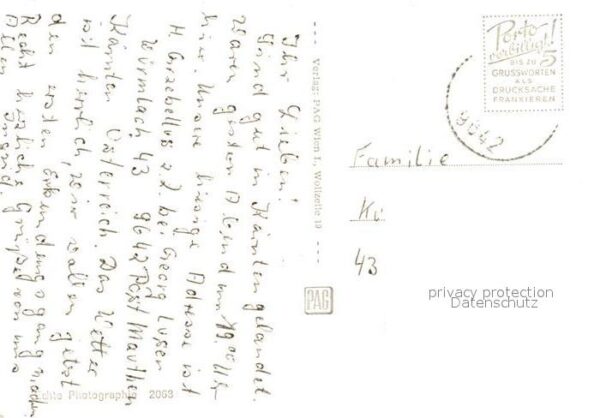 Ihr Lieben!
Sind gut in Kärnten gelandet.
Waren gestern Abend um 19.00 Uhr
hier. Unsere hiesige Adresse ist
H. z.Z. bei Georg
Würmlach 43 9642 Post Mauthen
Kärnten Österreich. Das Wetter
ist herrlich, wir wollen jetzt
den ersten Erkundungsgang machen
Recht herzliche Grüße von uns
Allen
Photographie 2063
Verlag: PAG Wien I., Wollzeile 19
PAG
Porto
verbilligt!
BIS ZU 5
GRUSSWORTEN
ALS
DRUCKSACHE
FRANKIEREN
9642
Familie
Kö
43
privacy protection
Datenschutz